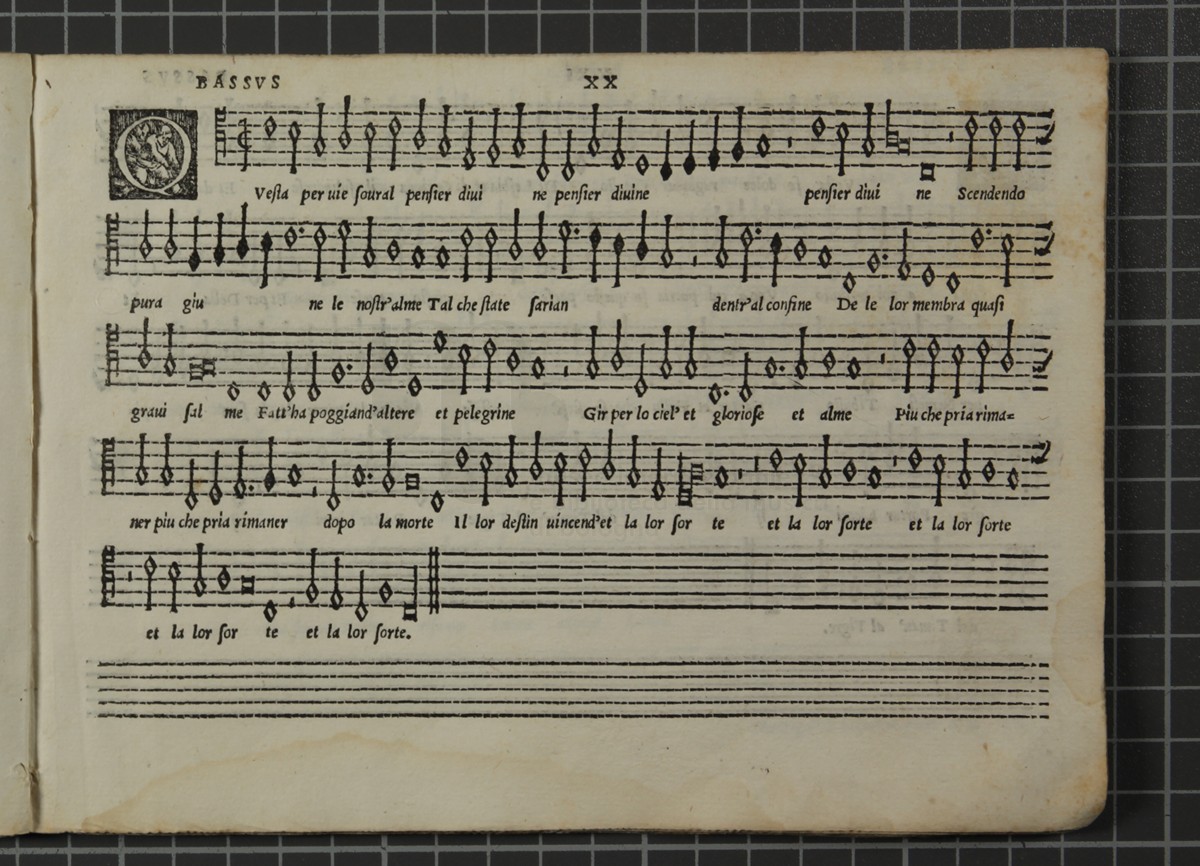 BASSVS XX
QVesta per uie soural pensier diui ne pensier diuine pensier diui ne Scendendo
pura giu ne le nostr'alme Tal che state sarian dentr'al confine De le lor membra quasi
graui sal me Fatt'ha poggiand'altere et pelegrine Gir per lo ciel' et gloriose et alme Piu che pria rima=
ner piu che pria rimaner dopo la morte Il lor destin uincend'et la lor sor te et la lor sorte et la lor sorte
et la lor sor te et la lor sorte.